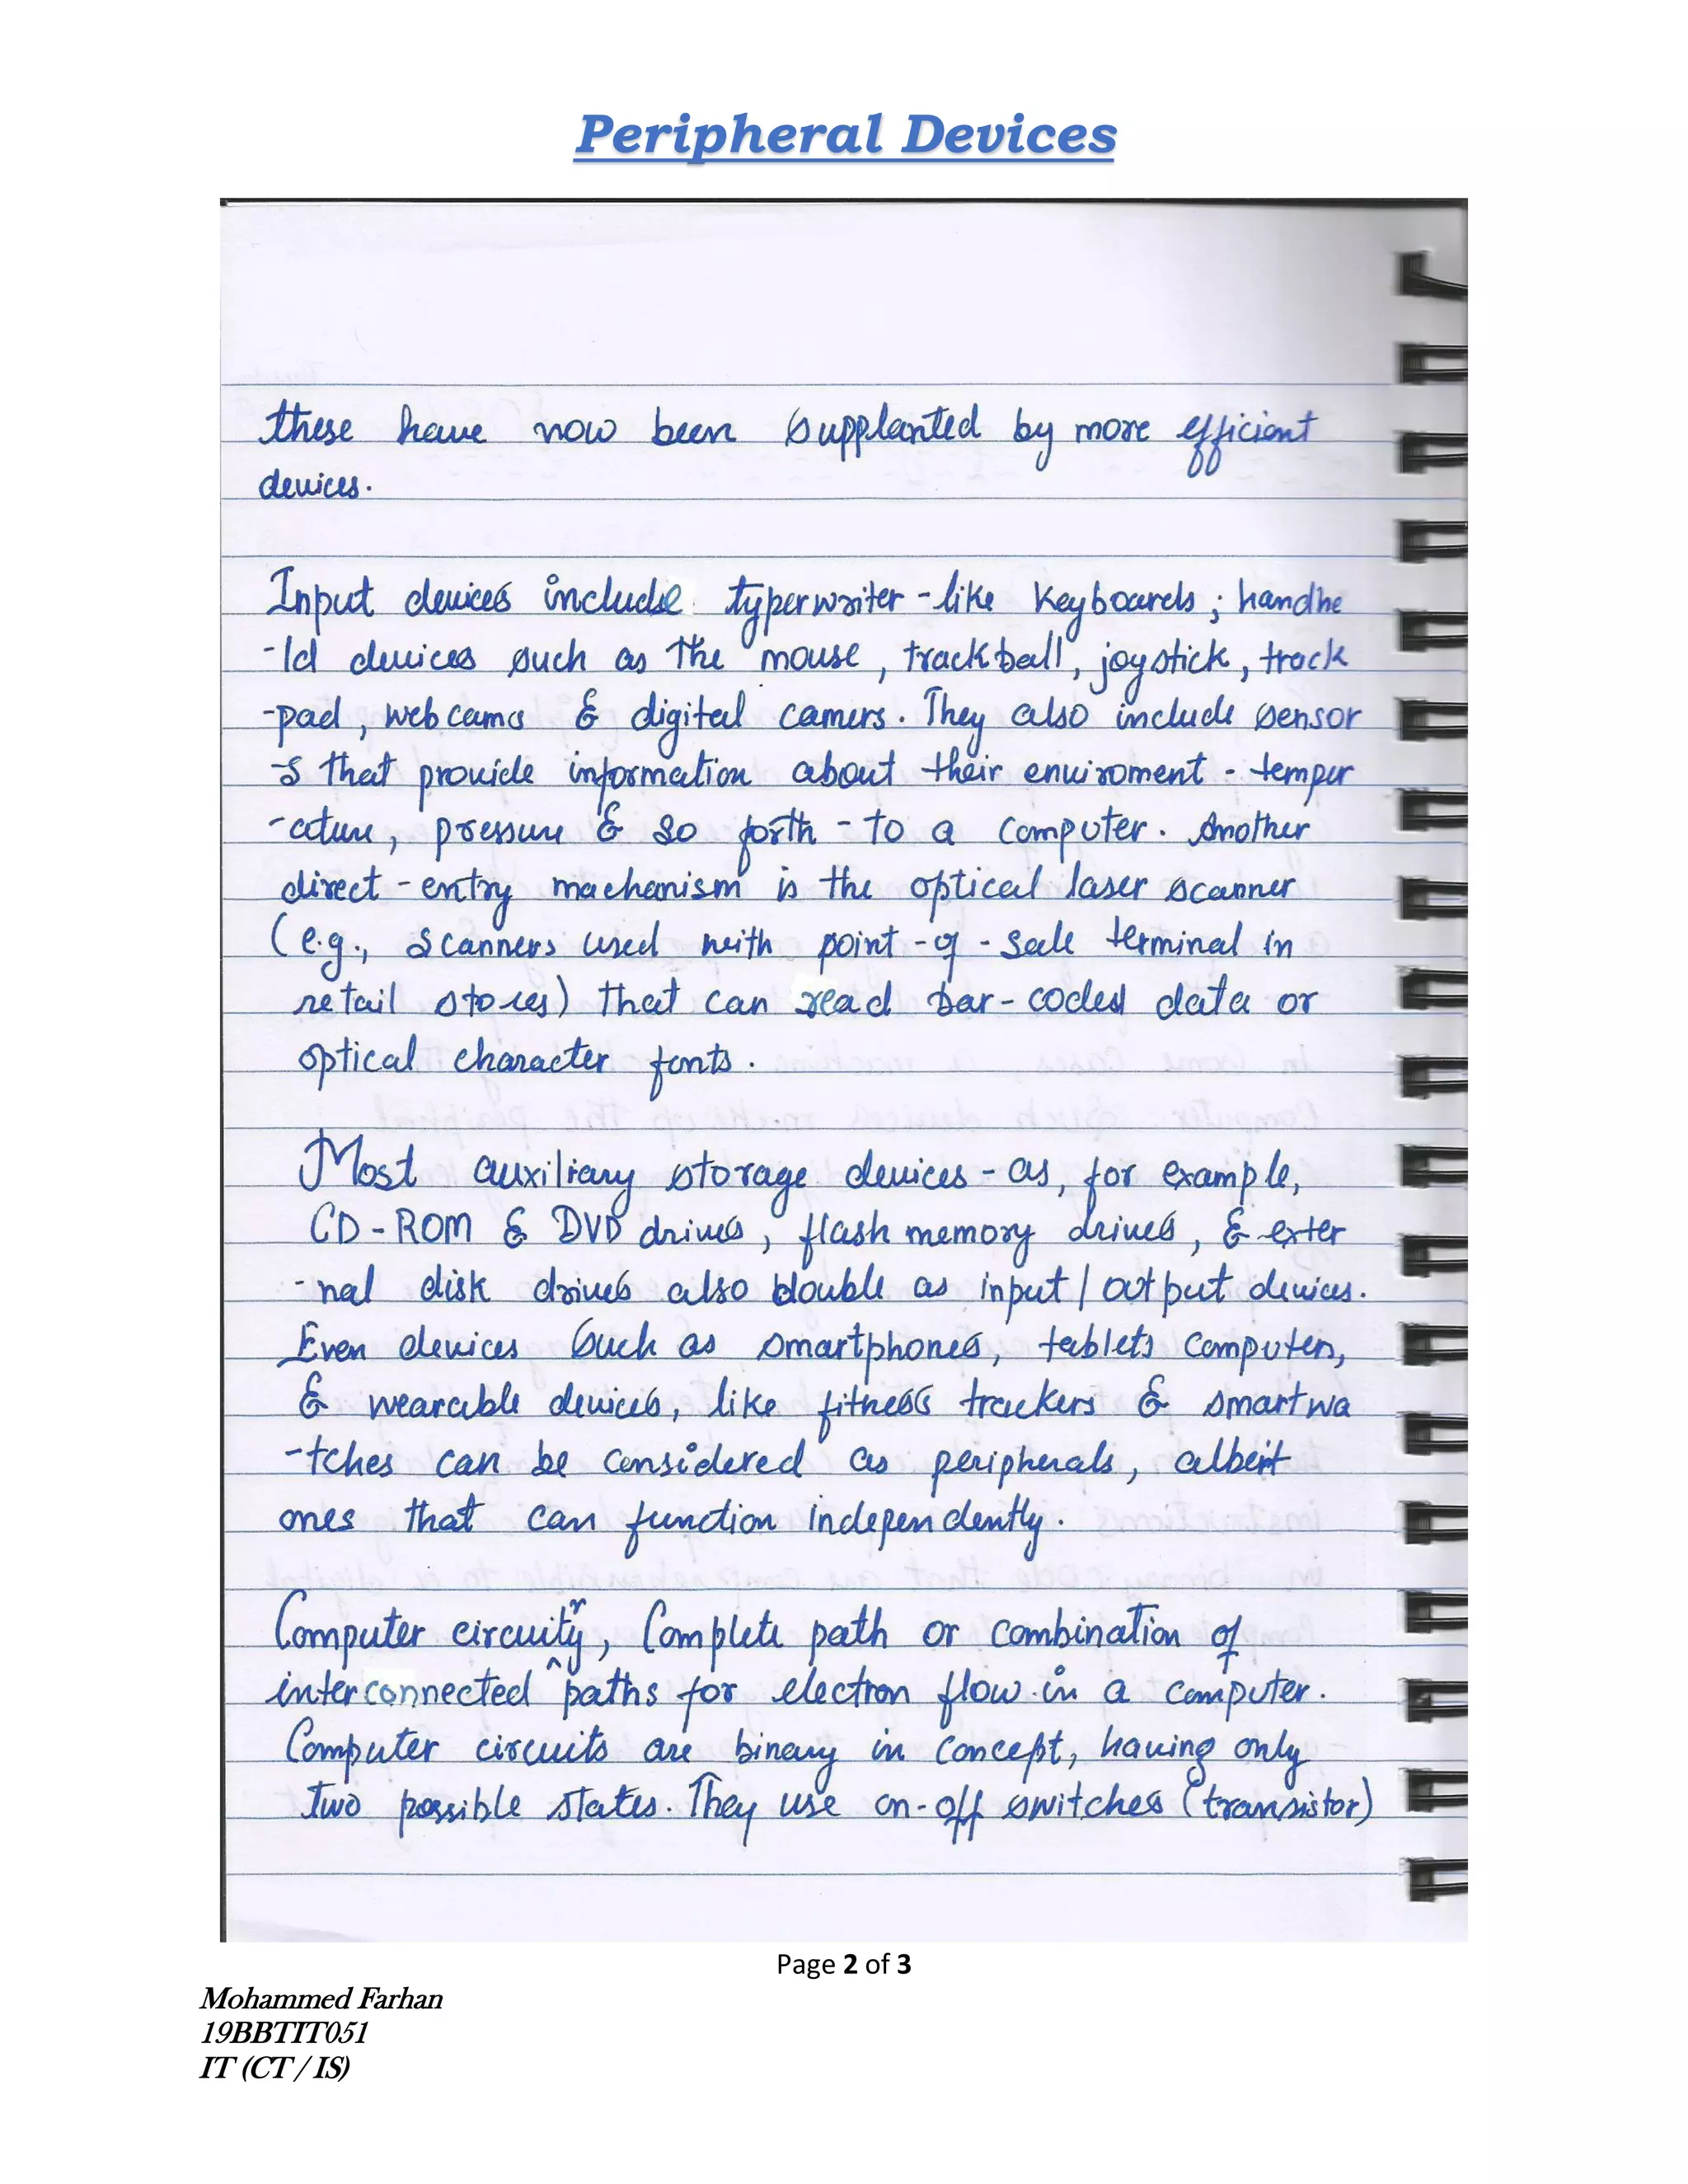 Peripheral Devices
these have now been supplanted by more efficient
devices.
Input devices include typerwriter-like keyboards; handhe
-ld devices such as the mouse, trackball, joystick, track
-pad, webcams & digital camers. They also include sensor
-s that provide information about their enviroment - temper
-ature, pressure & so forth - to a computer. Another
direct-entry machanism is the optical laser scanner
(e.g., scanners used with point-of-sale terminal in
retail stores) that can read bar-coded data or
optical character fonts.
Most auxiliary storage devices - as, for example,
CD-ROM & DVD drives, flash memory drives, & exter
-nal disk drives also double as input/output devices.
Even devices such as smartphones, tablets computers,
& wearable devices, like fitness trackers & smartwa
-tches can be considered as peripherals, albeit
ones that can function independently.
Computer circuitry, Complete path or combination of
interconnected paths for electron flow in a computer.
Computer circuits are binary in concept, having only
two possible states. They use on-off switches (transistor)
Page 2 of 3
Mohammed Farhan
19BBTIT051
IT (CT / IS)